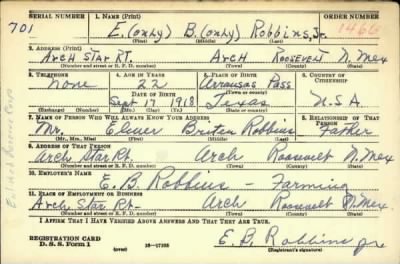 SERIAL NUMBER 1. NAME (Print) ORDER NUMBER
701 E.(only) B.(only) Robbins, Jr. 1466
(First) (Middle) (Last)
2. ADDRESS (Print)
Arch Star Rt. Arch Roosevelt N. Mex
(Number and street or R. F. D. number) (Town) (County) (State)
3. TELEPHONE 4. AGE IN YEARS 5. PLACE OF BIRTH 6. COUNTRY OF CITIZENSHIP
None 22 Arransas Pass
DATE OF BIRTH (Town or county)
Sept 17 1918 Texas U.S.A.
(Exchange) (Number) (Mo.) (Day) (Yr.) (State or country)
7. NAME OF PERSON WHO WILL ALWAYS KNOW YOUR ADDRESS 8. RELATIONSHIP OF THAT PERSON
Mr. Elmer Briten Robbins Father
(Mr., Mrs., Miss) (First) (Middle) (Last)
9. ADDRESS OF THAT PERSON
Arch Star Rt. Arch Roosevelt N. Mex
(Number and street or R. F. D. number) (Town) (County) (State)
10. EMPLOYER'S NAME
E. B. Robbins - Farming
11. PLACE OF EMPLOYMENT OR BUSINESS
Arch Star Rt. Arch Roosevelt N. Mex
(Number and street or R. F. D. number) (Town) (County) (State)
I AFFIRM THAT I HAVE VERIFIED ABOVE ANSWERS AND THAT THEY ARE TRUE.
REGISTRATION CARD
D. S. S. Form 1 (over) 16-17105 E. B. Robbins Jr
(Registrant's signature)